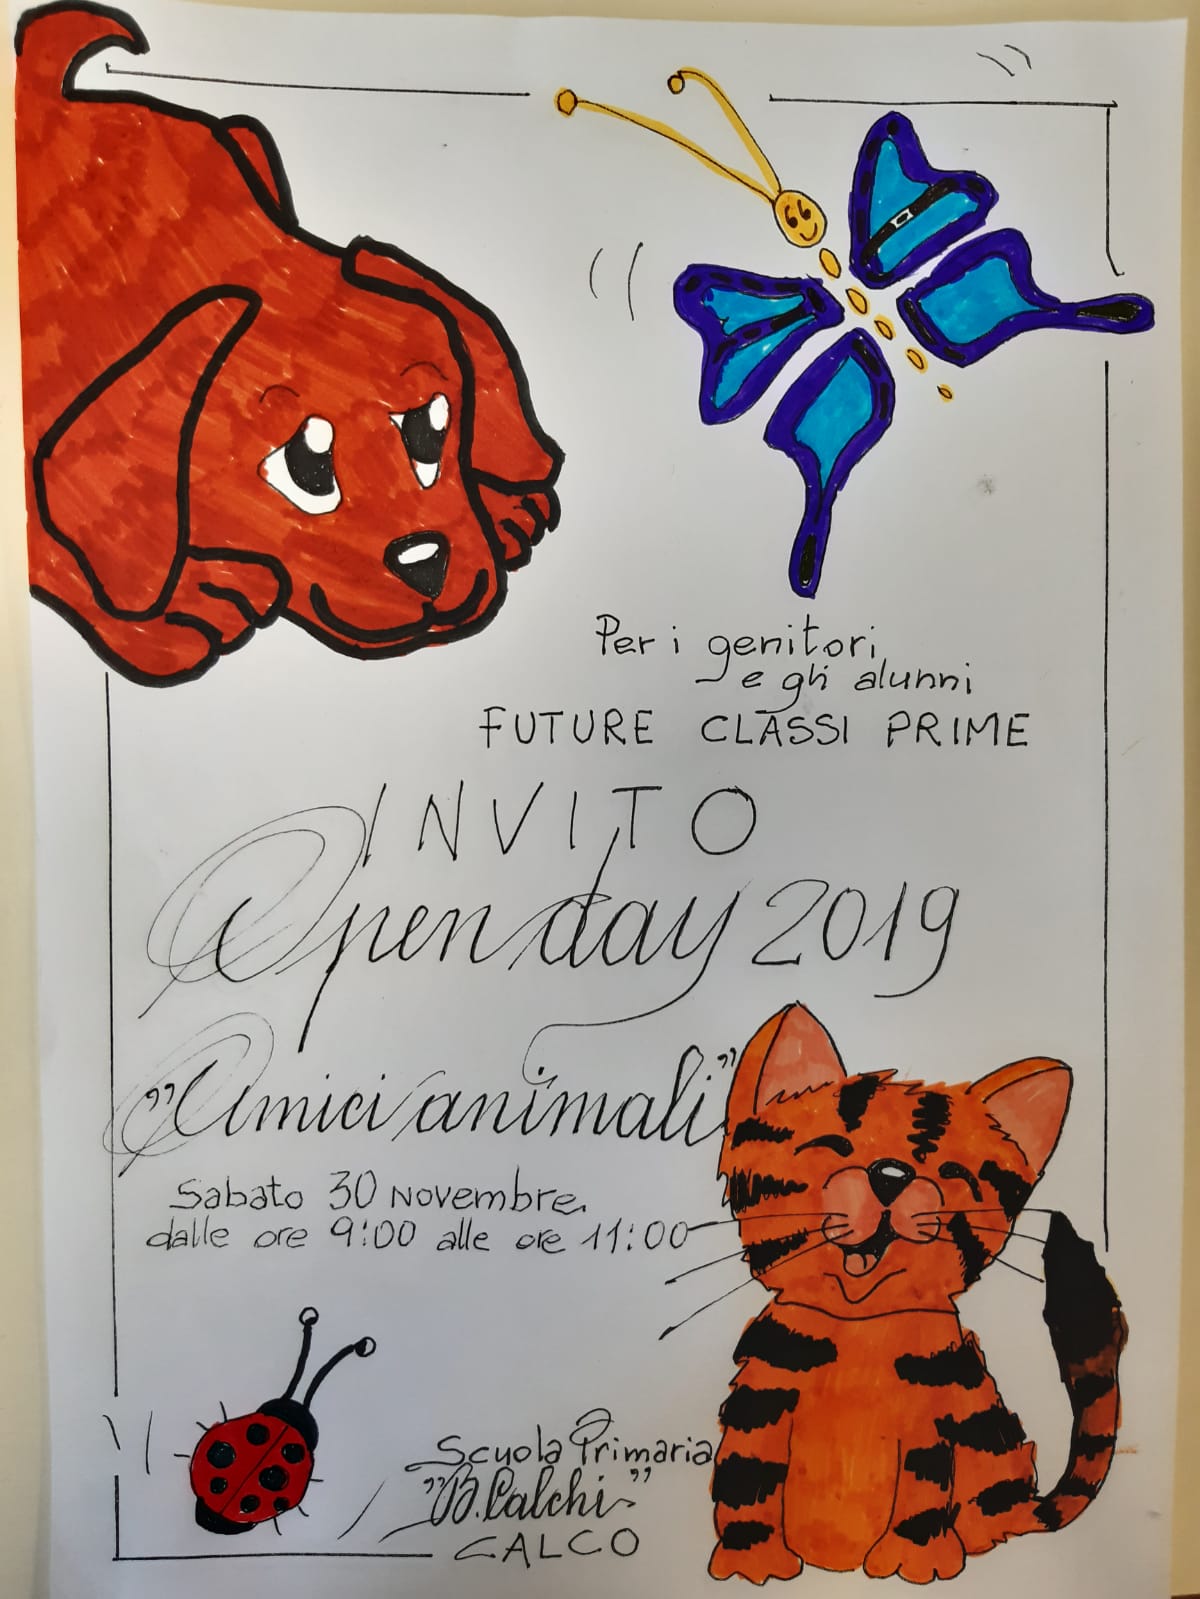 Per i genitori
e gli alunni
FUTURE CLASSI PRIME
INVITO
Open day 2019
"Amici animali"
Sabato 30 Novembre.
dalle ore 9:00 alle ore 11:00
Scuola Primaria
"B. Calchi"
CALCO